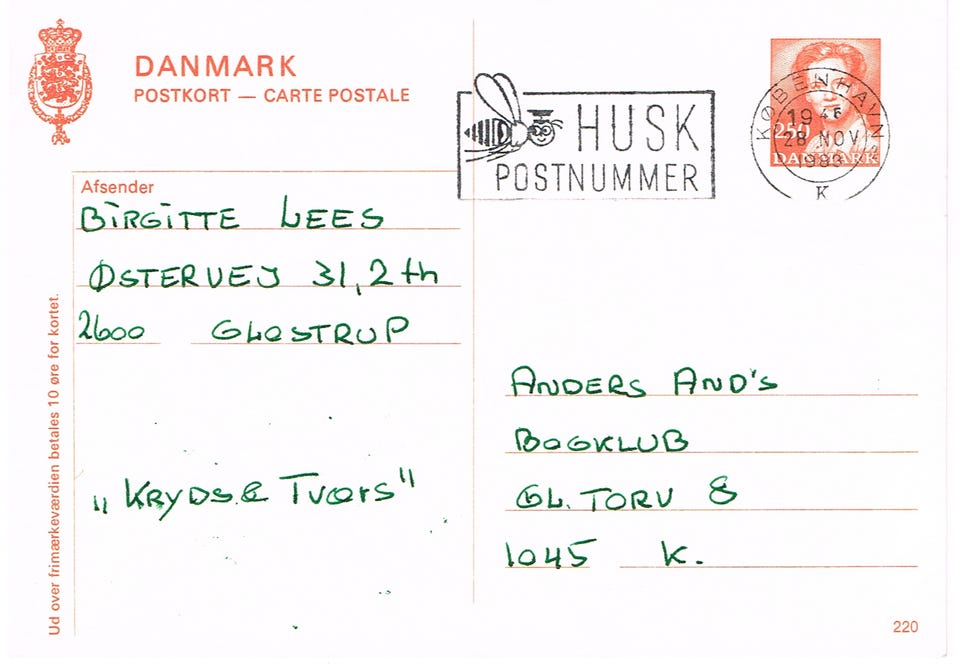 DANMARK
POSTKORT — CARTE POSTALE
HUSK
POSTNUMMER
KØBENHAVN
19 46
28 NOV
1983
K
250
DANMARK
Afsender
BIRGITTE LEES
ØSTERVEJ 31, 2 th
2600 GLOSTRUP
„KRYDS & TVÆRS"
ANDERS AND'S
BOGKLUB
GL. TORV 8
1045 K.
Ud over frimærkeværdien betales 10 øre for kortet.
220